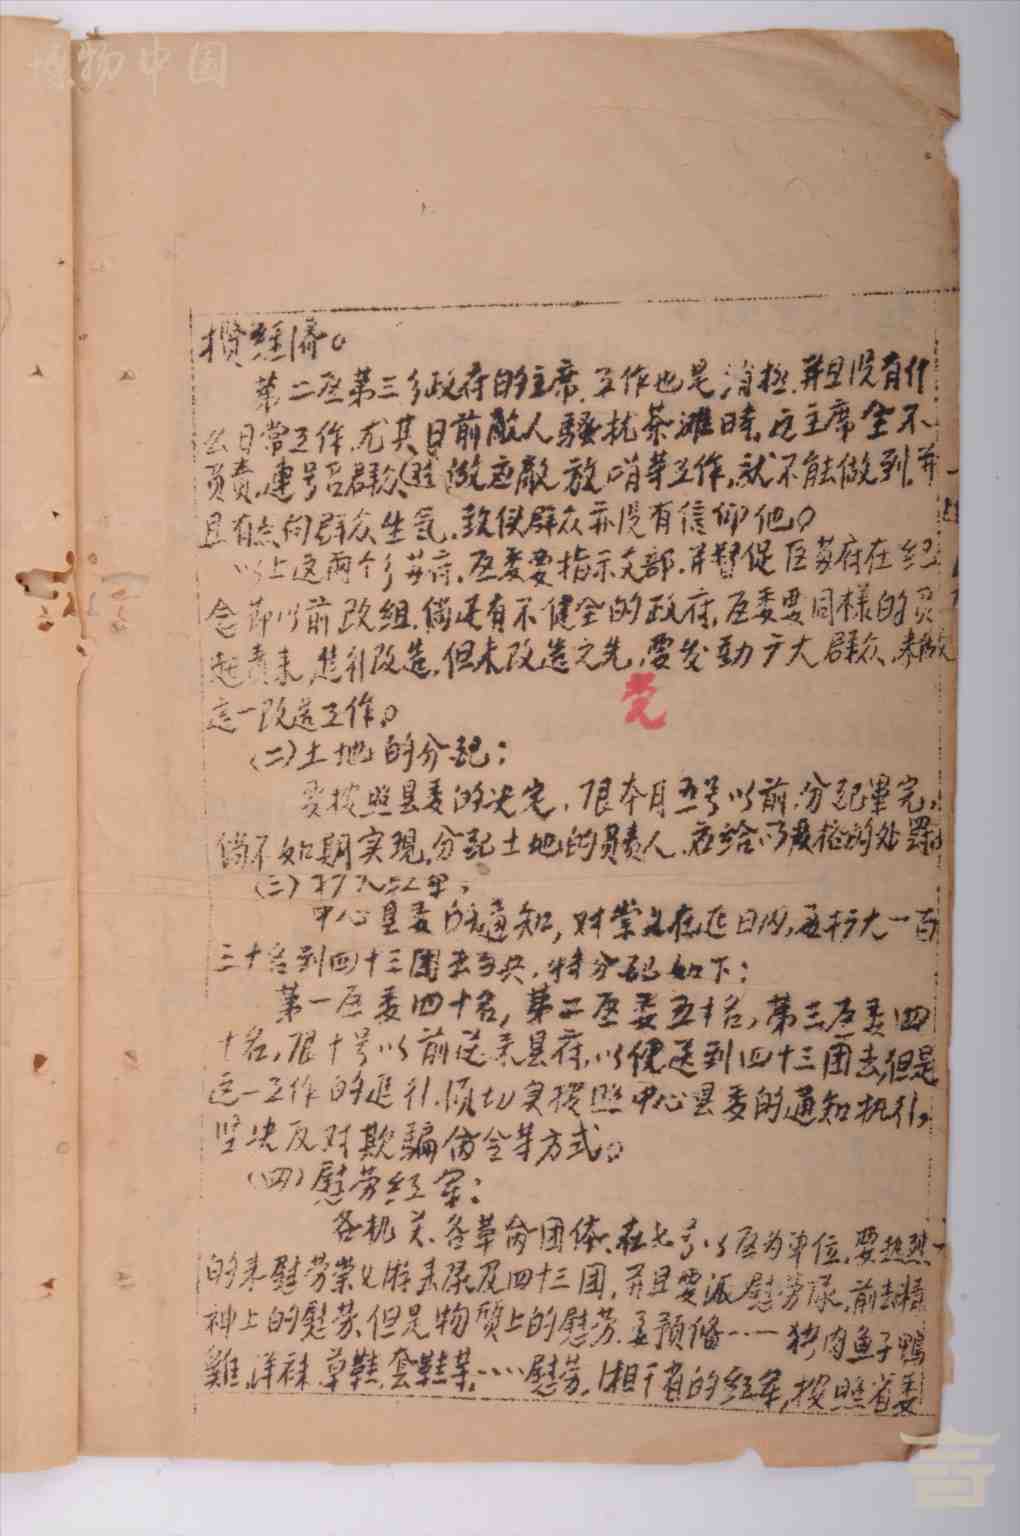 博物中国
攬經濟。
第二区第三乡政府的主席，工作也是消极，并且没有什
么日常工作，尤其日前敵人騷扰茶灘時，这主席全不
負責，連号召群众做应敵放哨等工作，就不能做到，并
且有点向群众生气，致使群众亦没有信仰他。
以上这两个乡苏府，区委要指示支部，并督促区苏府在纪
念节以前改组，倘还有不健全的政府，区委要同樣的負
起責来，進行改造，但未改造之先，要发动广大群众，来做
这一改造工作。
党
(二)土地的分配：
要按照县委的决定，限本月五号以前，分配畢完，
倘不如期实現，分配土地的負責人，应給以严格的处罰
(三)扩大红軍：
中心县委的通知，对崇义在近日内，要扩大一百
三十名到四十三团去当兵，特分配如下：
第一区委四十名，第二区委五十名，第三区委四
十名，限十号以前送来县府，以便送到四十三团去，但是
这一工作的進行，须切实按照中心县委的通知执行，
坚决反对欺騙命令等方式。
(四)慰劳红軍：
各机关、各革命团体，在七号以区为单位，要热烈
的来慰劳崇义游击队及四十三团，并且要派慰劳隊，前去精
神上的慰劳，但是物質上的慰劳，要預俻……猪肉魚子鴨
雞，洋袜，草鞋，套鞋等……慰劳，湘干省的红軍，按照省委
言